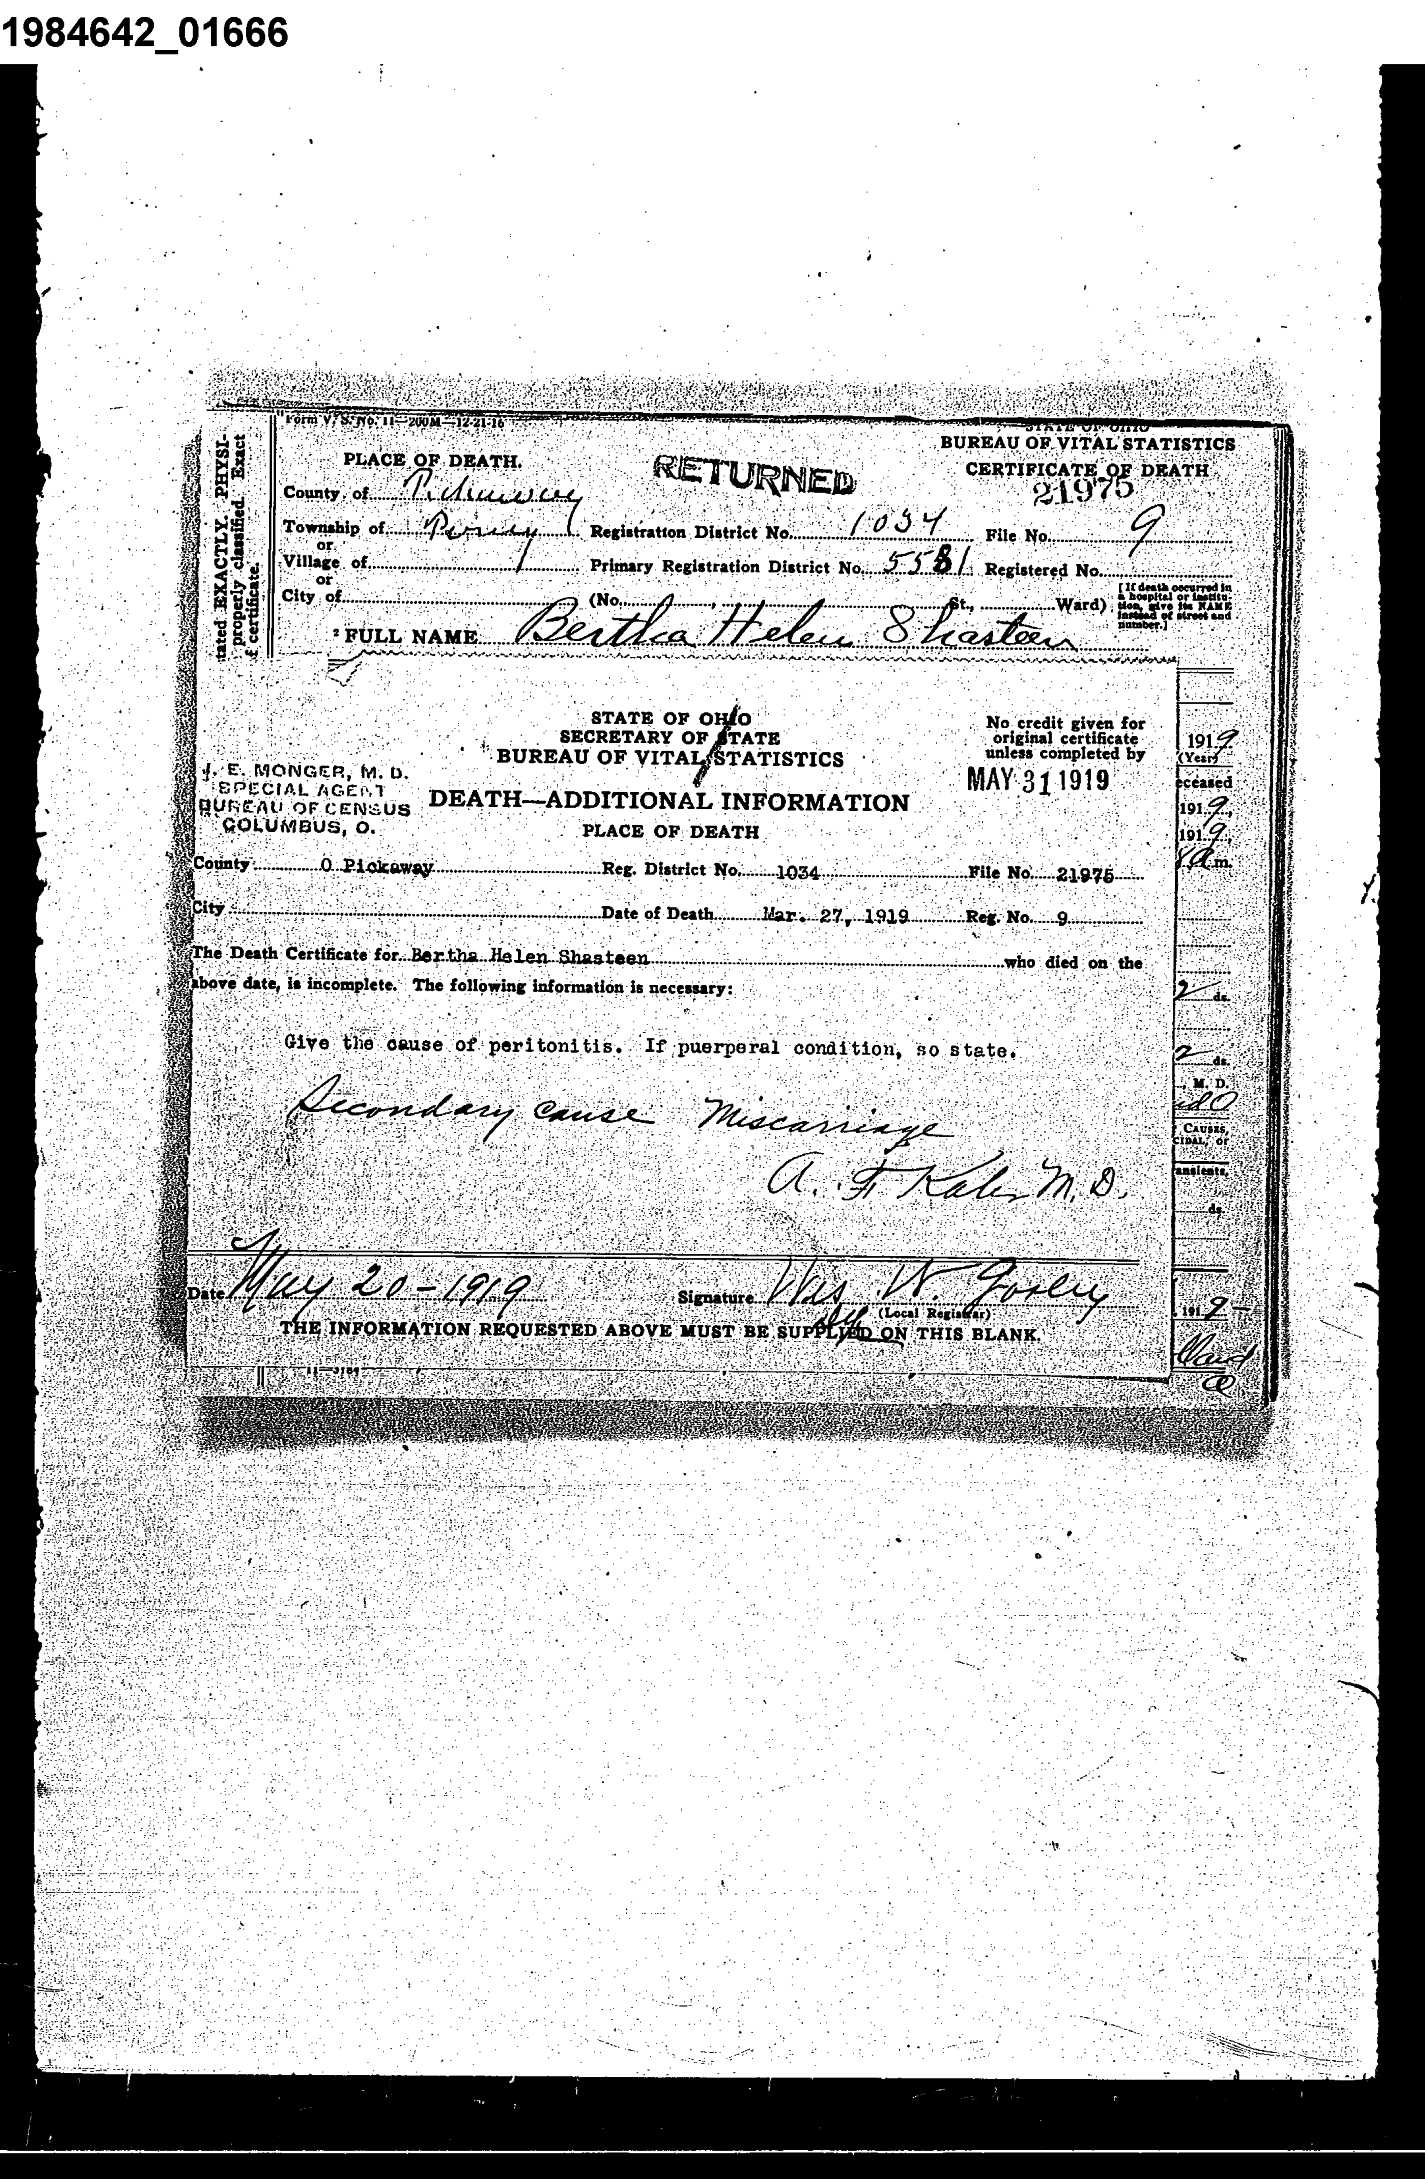 1984642_01666
Form V. S. No. 11—200M—12-21-16
STATE OF OHIO
BUREAU OF VITAL STATISTICS
PLACE OF DEATH.
RETURNED
CERTIFICATE OF DEATH
21975
County of Pickaway
Township of Perry Registration District No. 1034 File No. 9
or
Village of Primary Registration District No. 5581 Registered No.
or
City of (No. , St., Ward) [If death occurred in a hospital or institution, give its NAME instead of street and number.]
2 FULL NAME Bertha Helen Shasteen
tated EXACTLY. PHYSI-
properly classified. Exact
f certificate.
STATE OF OHIO
SECRETARY OF STATE
BUREAU OF VITAL STATISTICS
No credit given for
original certificate
unless completed by
MAY 31 1919
J. E. MONGER, M. D.
SPECIAL AGENT
BUREAU OF CENSUS
COLUMBUS, O.
DEATH—ADDITIONAL INFORMATION
PLACE OF DEATH
County O Pickaway Reg. District No. 1034 File No. 21975
City Date of Death Mar. 27, 1919 Reg. No. 9
The Death Certificate for Bertha Helen Shasteen who died on the
above date, is incomplete. The following information is necessary:
Give the cause of peritonitis. If puerperal condition, so state.
Secondary cause Miscarriage
A. F. Kaler M.D.
Date May 20-1919 Signature Wes W. Gooley
(Local Registrar)
THE INFORMATION REQUESTED ABOVE MUST BE SUPPLIED ON THIS BLANK.
1919
(Year)
eceased
1919,
1919,
a.m.
2 ds.
2 ds.
, M. D.
CAUSES,
CIDAL, or
ansients.
ds.
1919